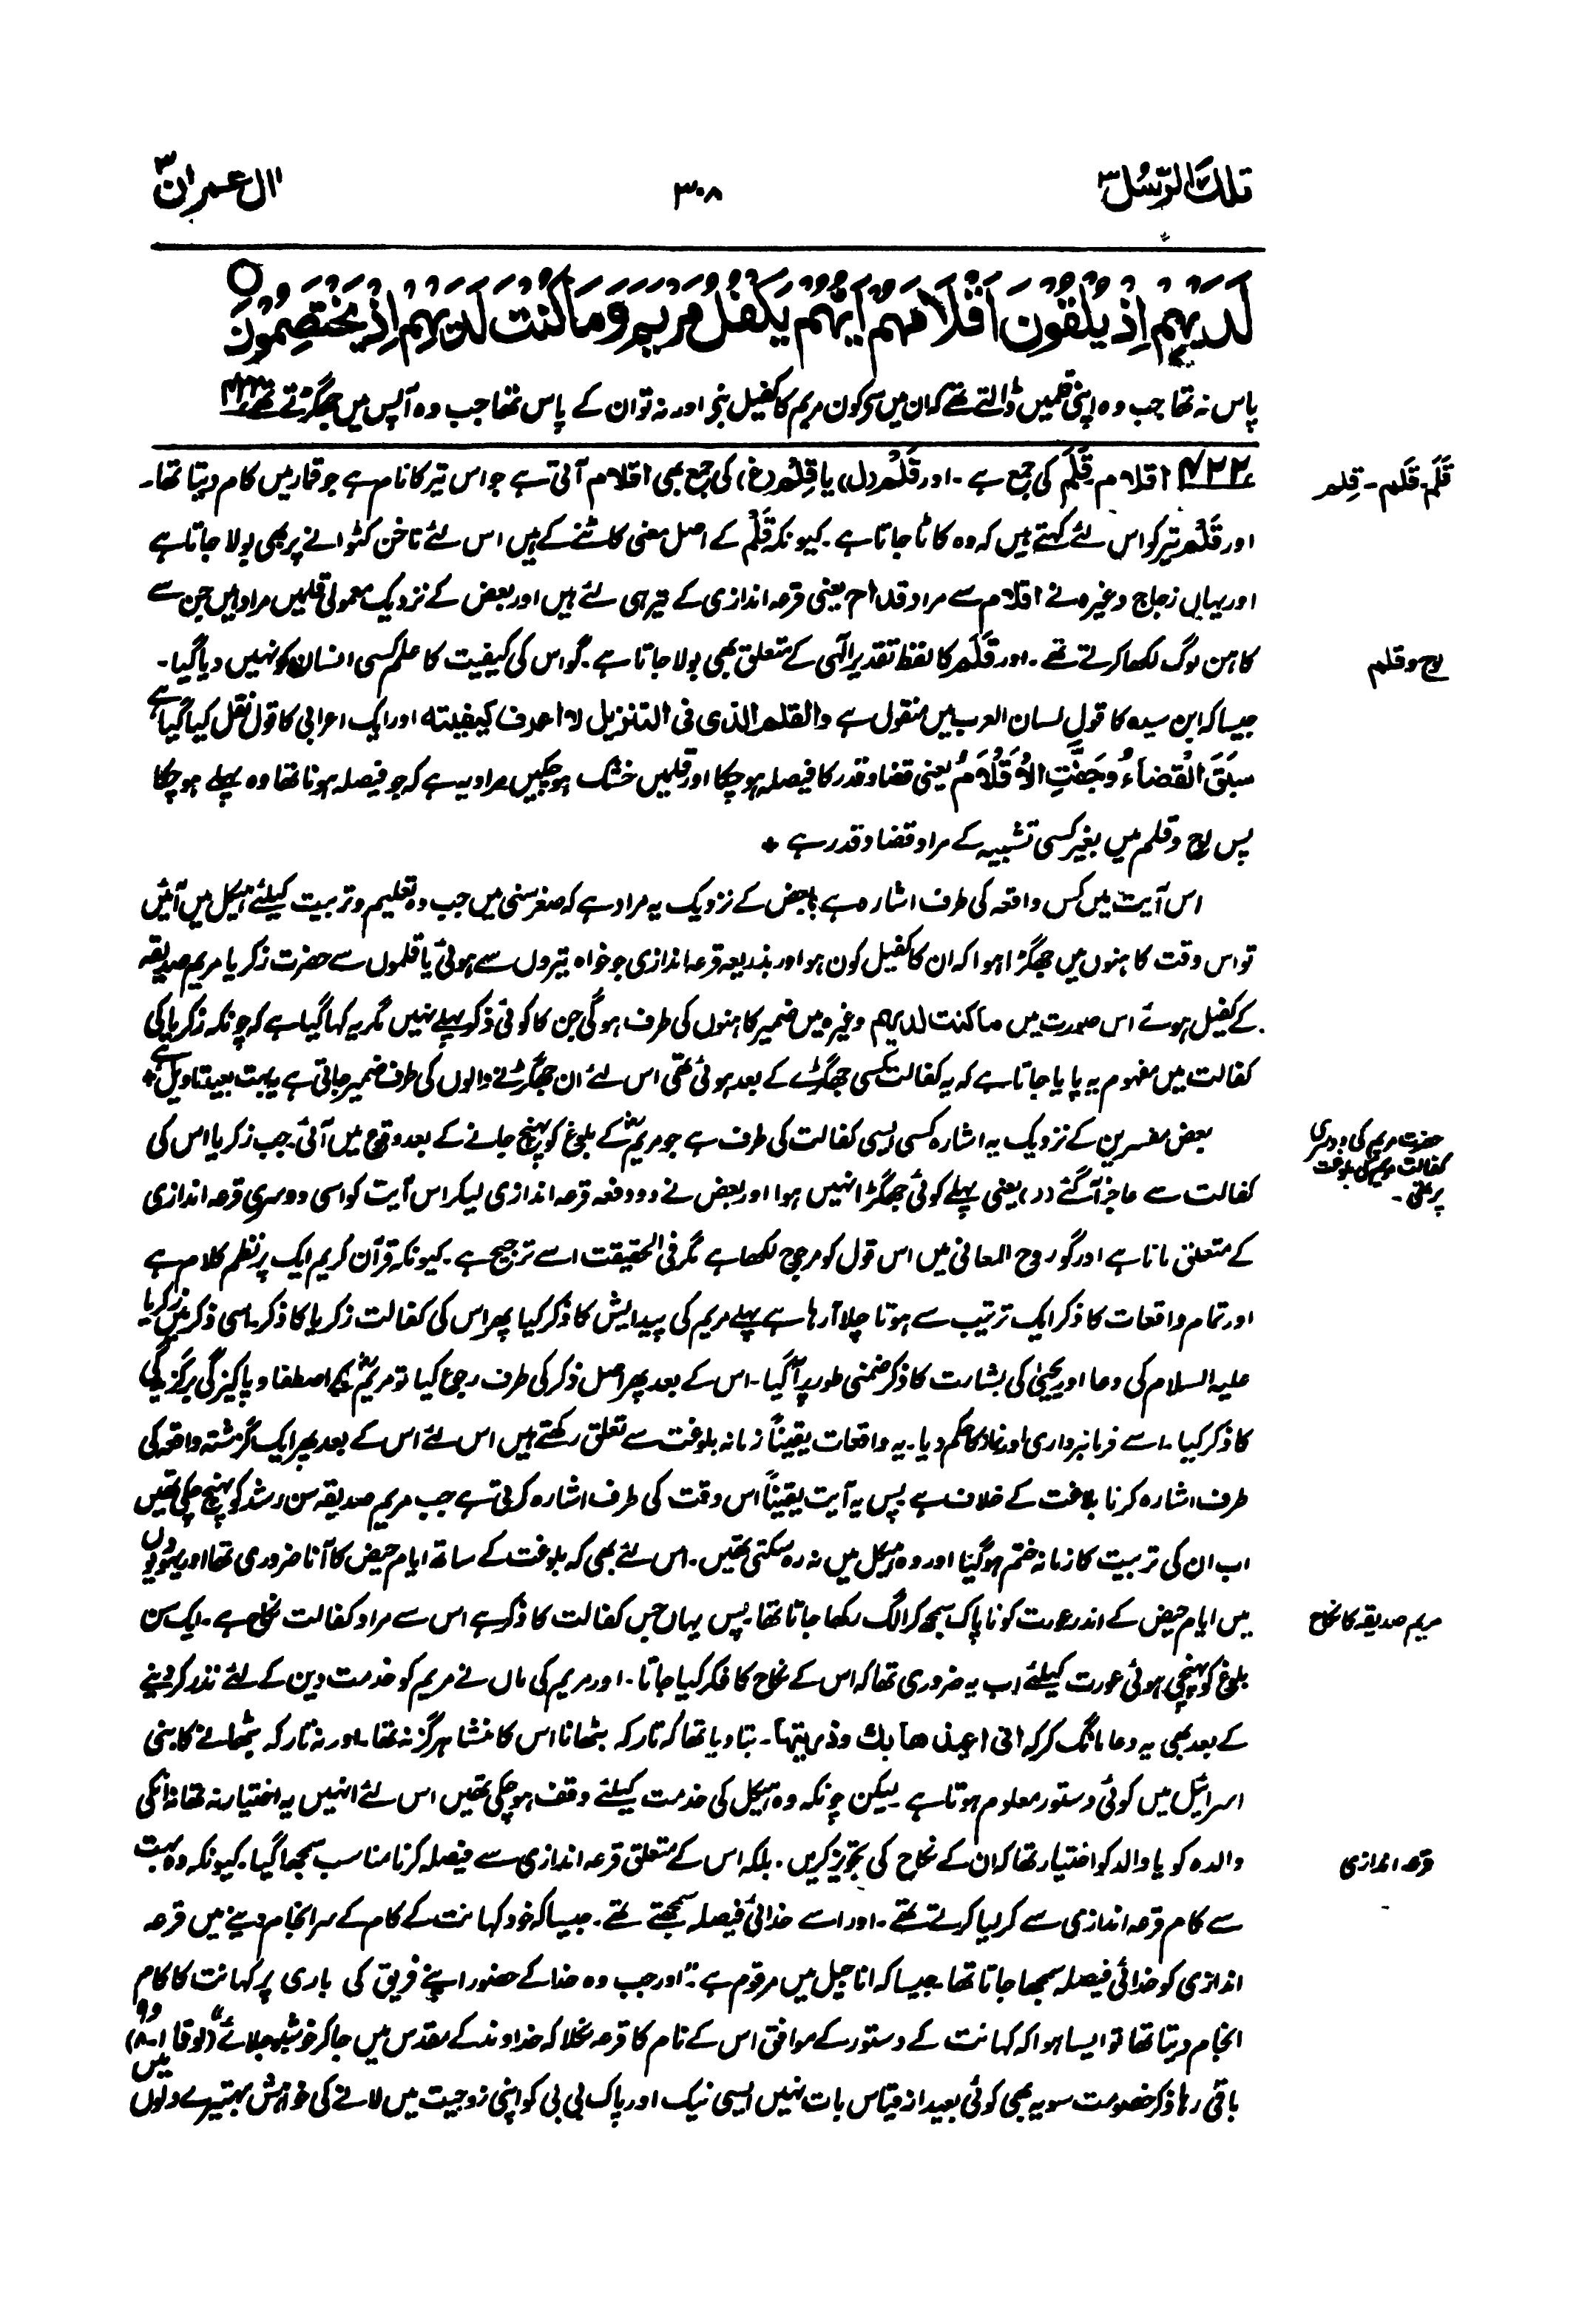 تلك الرسل ۳
۳۰۸
اٰل عمران ۳
لَدَيْهِمْ اِذْ يُلْقُوْنَ اَقْلَامَهُمْ اَيُّهُمْ يَكْفُلُ مَرْيَمَ وَمَا كُنْتَ لَدَيْهِمْ اِذْ يَخْتَصِمُوْنَ ○
پاس نہ تھا جب وہ اپنی قلمیں ڈالتے تھے کہ ان میں سے کون مریم کا کفیل بنے اور نہ تو ان کے پاس تھا جب وہ آپس میں جھگڑتے تھے ۴۲۲
۴۲۲ اقلام۔ قَلَم کی جمع ہے۔ اور قَلَمْ (ل) یا قِلْمْ (غ) کی جمع بھی اقلام آتی ہے جو اس تیر کا نام ہے جو قمار میں کام دیتا تھا۔
قَلَم۔ قَلَم۔ قِلم
اور قَلَمْ تیر کو اس لئے کہتے ہیں کہ وہ کاٹا جاتا ہے۔ کیونکہ قَلْم کے اصل معنی کاٹنے کے ہیں اس لئے ناخن کٹوانے پر بھی بولا جاتا ہے
اور یہاں زجاج وغیرہ نے اقلام سے مراد قداح یعنی قرعہ اندازی کے تیر ہی لئے ہیں اور بعض کے نزدیک معمولی قلمیں مراد ہیں جن سے
کاہن لوگ لکھا کرتے تھے۔ اور قَلَم کا لفظ تقدیر الٰہی کے متعلق بھی بولا جاتا ہے۔ گو اس کی کیفیت کا علم کسی انسان کو نہیں دیا گیا۔
لوح و قلم
جیسا کہ ابن سیدہ کا قول لسان العرب میں منقول ہے والقلم الذی فی التنزیل لا اعرف کیفیته اور ایک اعرابی کا قول نقل کیا گیا ہے
سَبَقَ الْقَضَاءُ وَجَفَّتِ الْاَقْلَامُ یعنی قضا و قدر کا فیصلہ ہو چکا اور قلمیں خشک ہو چکیں مراد یہ ہے کہ جو فیصلہ ہونا تھا وہ پہلے ہو چکا
پس لوح و قلم میں بغیر کسی تشبیہ کے مراد قضا و قدر ہے ٭
اس آیت میں کس واقعہ کی طرف اشارہ ہے؟ بعض کے نزدیک یہ مراد ہے کہ صغر سنی میں جب وہ تعلیم و تربیت کیلئے ہیکل میں آئیں
تو اس وقت کاہنوں میں جھگڑا ہوا کہ ان کا کفیل کون ہو اور بذریعہ قرعہ اندازی جو خواہ تیروں سے ہوئی یا قلموں سے حضرت زکریا مریم صدیقہ
کے کفیل ہوئے اس صورت میں ما کنت لدیہم وغیرہ میں ضمیر کاہنوں کی طرف ہوگی جن کا کوئی ذکر پہلے نہیں مگر یہ کہا گیا ہے کہ چونکہ زکریا کی
کفالت میں مفہوم یہ پایا جاتا ہے کہ یہ کفالت کسی جھگڑے کے بعد ہوئی تھی اس لئے ان جھگڑنے والوں کی طرف ضمیر جاتی ہے یہ بہت بعید تاویل ہے ٭
بعض مفسرین کے نزدیک یہ اشارہ کسی ایسی کفالت کی طرف ہے جو مریمؑ کے بلوغ کو پہنچ جانے کے بعد وقوع میں آئی۔ جب زکریا اس کی
حضرت مریم کی دوسری
کفالت مریم کی بلوغت
پر تھی۔
کفالت سے عاجز آگئے (ر) یعنی پہلے کوئی جھگڑا نہیں ہوا اور بعض نے دو دفعہ قرعہ اندازی لیکر اس آیت کو اسی دوسری قرعہ اندازی
کے متعلق مانا ہے اور گو روح المعانی میں اس قول کو مرجوح لکھا ہے مگر فی الحقیقت اسے ترجیح ہے۔ کیونکہ قرآن کریم ایک پر نظم کلام ہے
اور تمام واقعات کا ذکر ایک ترتیب سے ہوتا چلا آرہا ہے پہلے مریم کی پیدایش کا ذکر کیا پھر اس کی کفالت زکریا کا ذکر۔ اسی ذکر میں زکریا
علیہ السلام کی دعا اور یحییٰ کی بشارت کا ذکر ضمنی طور پر آگیا۔ اس کے بعد پھر اصل ذکر کی طرف رجوع کیا تو مریمؑ کے اصطفا و پاکیزگی برگزیدگی
کا ذکر کیا۔ اسے فرمانبرداری اور نماز کا حکم دیا۔ یہ واقعات یقیناً زمانہ بلوغت سے تعلق رکھتے ہیں اس لئے اس کے بعد پھر ایک گزشتہ واقعہ کی
طرف اشارہ کرنا بلاغت کے خلاف ہے پس یہ آیت یقیناً اس وقت کی طرف اشارہ کرتی ہے جب مریم صدیقہ سن رشد کو پہنچ چکی تھیں
اب ان کی تربیت کا زمانہ ختم ہو گیا اور وہ ہیکل میں نہ رہ سکتی تھیں۔ اس لئے بھی کہ بلوغت کے ساتھ ایام حیض کا آنا ضروری تھا اور یہودیوں
میں ایام حیض کے اندر عورت کو ناپاک سمجھ کر الگ رکھا جاتا تھا۔ پس یہاں جس کفالت کا ذکر ہے اس سے مراد کفالت نکاح ہے۔ ایک سن
مریم صدیقہ کا نکاح
بلوغ کو پہنچی ہوئی عورت کیلئے اب یہ ضروری تھا کہ اس کے نکاح کا فکر کیا جاتا۔ اور مریم کی ماں نے مریم کو خدمت دین کے لئے نذر کر دینے
کے بعد بھی یہ دعا مانگ کر کہ انی اعیذھا بك وذریتھا۔ بتا دیا تھا کہ تارکہ بٹھانا اس کا منشا ہرگز نہ تھا۔ اور نہ تارکہ بٹھانے کا بنی
اسرائیل میں کوئی دستور معلوم ہوتا ہے لیکن چونکہ وہ ہیکل کی خدمت کیلئے وقف ہو چکی تھیں اس لئے انہیں یہ اختیار نہ تھا نہ انکی
والدہ کو یا والد کو اختیار تھا کہ ان کے نکاح کی تجویز کریں۔ بلکہ اس کے متعلق قرعہ اندازی سے فیصلہ کرنا مناسب سمجھا گیا۔ کیونکہ وہ بہت
قرعہ اندازی
سے کام قرعہ اندازی سے کر لیا کرتے تھے۔ اور اسے خدائی فیصلہ سمجھتے تھے۔ جیسا کہ خود کہانت کے کام کے سرانجام دینے میں قرعہ
اندازی کو خدائی فیصلہ سمجھا جاتا تھا۔ جیسا کہ اناجیل میں مرقوم ہے: "اور جب وہ خدا کے حضور اپنے فریق کی باری پر کہانت کا کام
انجام دیتا تھا تو ایسا ہوا کہ کہانت کے دستور کے موافق اس کے نام کا قرعہ نکلا کہ خداوند کے مقدس میں جا کر خوشبو جلائے" (لوقا ۱-۸ و ۹)
باقی رہا ذکر خصومت سو یہ بھی کوئی بعید از قیاس بات نہیں ایسی نیک اور پاک بی بی کو اپنی زوجیت میں لانے کی خواہش بہتیرے دلوں میں